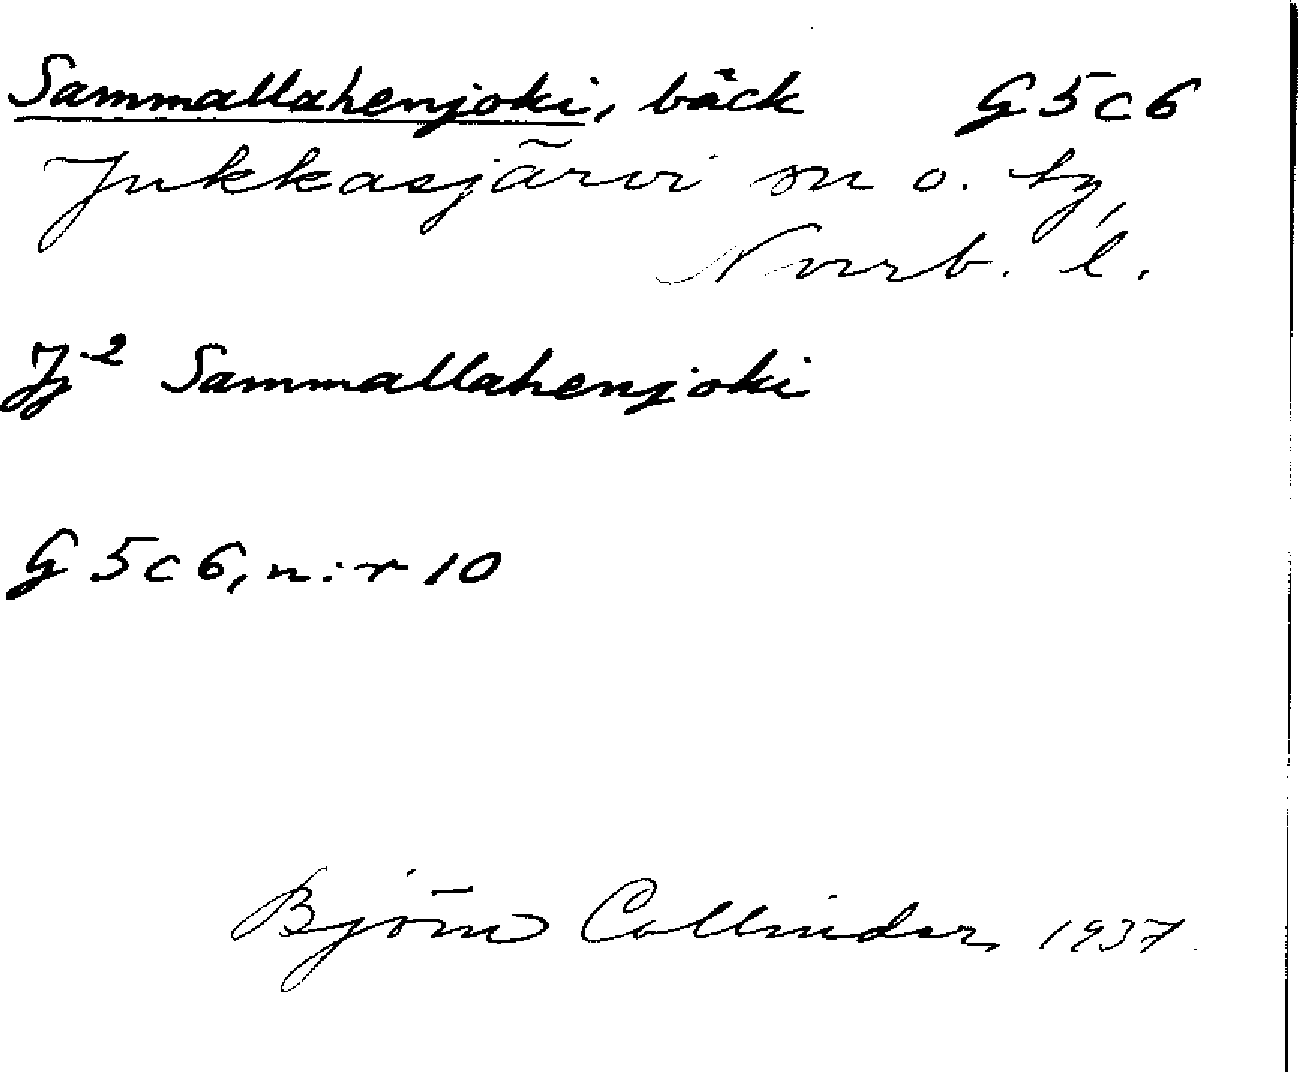 Sammallahenjoki, bäck G 5 c 6
Jukkasjärvi sn o. tg,
Norrb. l.
Jj² Sammallahenjoki
G 5 c 6, n:r 10
Björn Collinder 1937